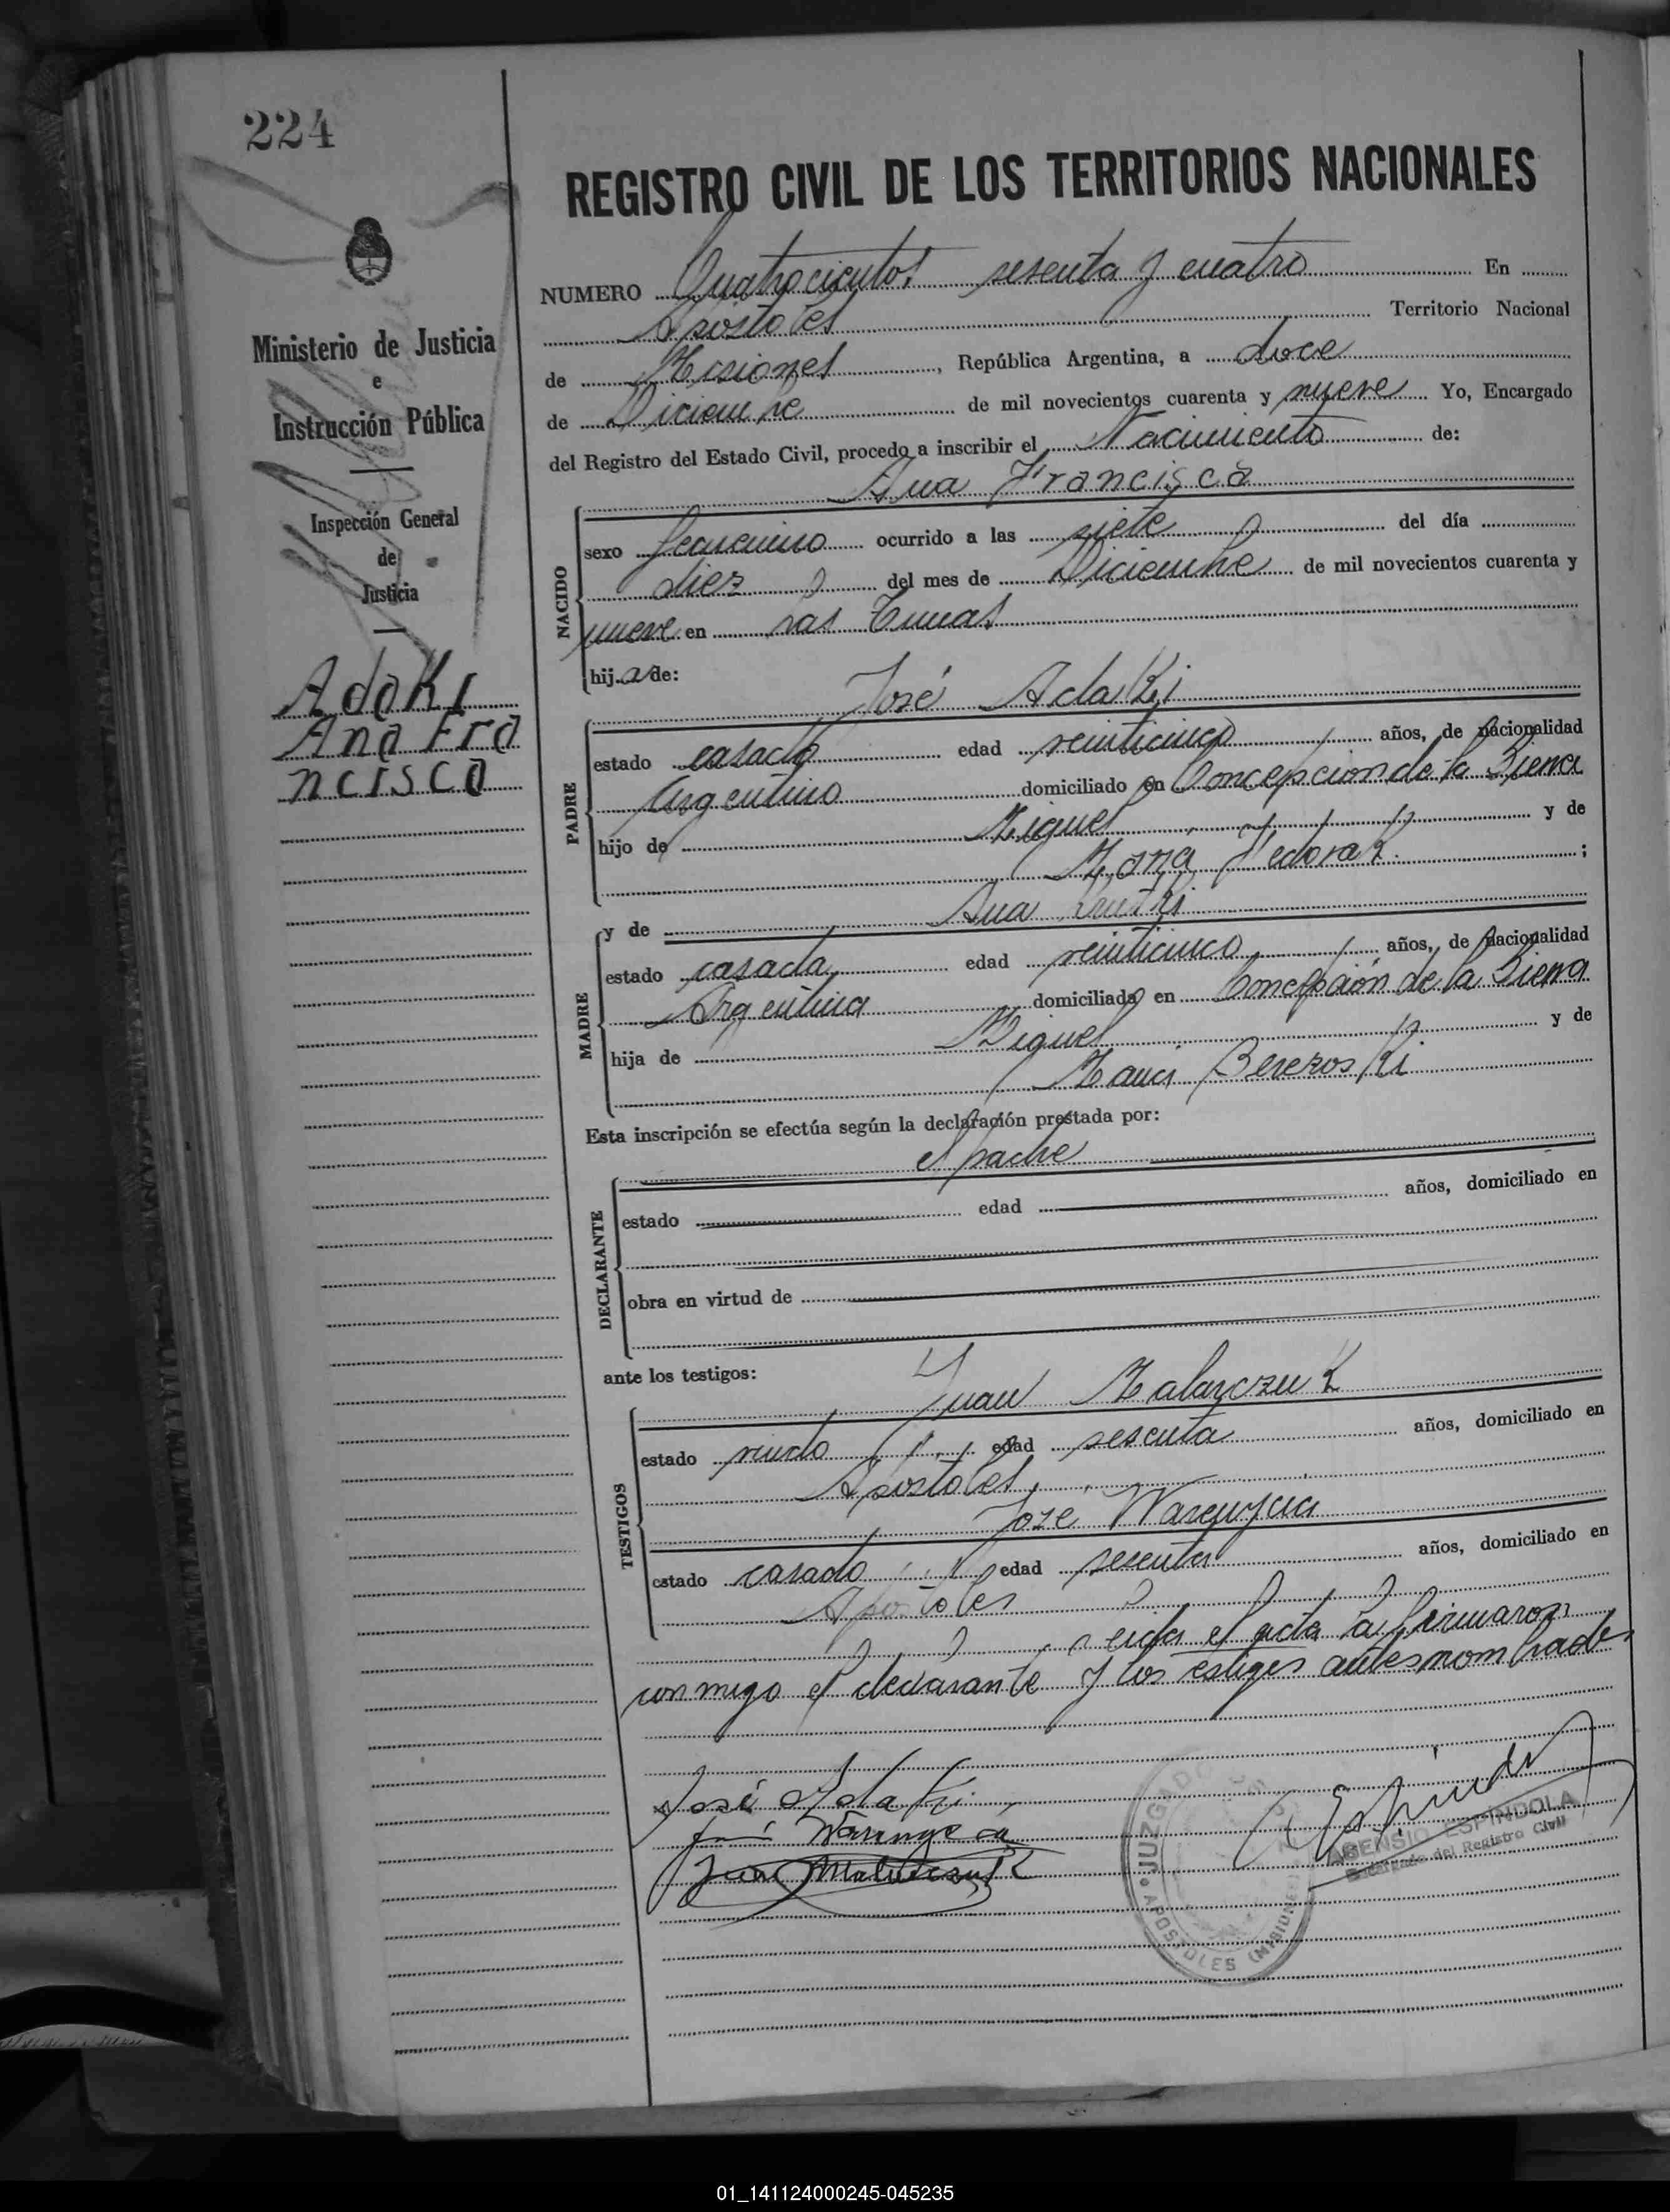 224
REGISTRO CIVIL DE LOS TERRITORIOS NACIONALES
NUMERO Quatrocientos sesenta y cuatro En
Apostoles Territorio Nacional
de Misiones, República Argentina, a doce
de Diciembre de mil novecientos cuarenta y nueve Yo, Encargado
del Registro del Estado Civil, procedo a inscribir el Nacimiento de:
Ana Francisca
Ministerio de Justicia
e
Instrucción Pública
Inspección General
de
Justicia
Adaki
Ana Fra
ncisca
NACIDO
sexo femenino ocurrido a las siete del día
diez del mes de Diciembre de mil novecientos cuarenta y
nueve en Las Tunas
hija de:
José Adaki
PADRE
estado casado edad veinticinco años, de nacionalidad
Argentino domiciliado en Concepcion de la Sierra
hijo de Miguel y de
Fedorak;
y de Ana
MADRE
estado casada edad veinticinco años, de nacionalidad
Argentina domiciliada en Concepción de la Sierra
hija de Miguel y de
Beresoski
Esta inscripción se efectúa según la declaración prestada por:
el padre
DECLARANTE
estado edad años, domiciliado en
obra en virtud de
ante los testigos:
Juan Malarczuk
TESTIGOS
estado viudo edad sesenta años, domiciliado en
Apostoles
José
estado casado edad sesenta años, domiciliado en
Apostoles
Leida el acta la firmaron
conmigo el declarante y los testigos antes nombrados
José Adaki
Juan
JUZGADO
APOSTOLES (MISIONES)
ASENSIO ESPINDOLA
Encargado del Registro Civil
01_141124000245-045235